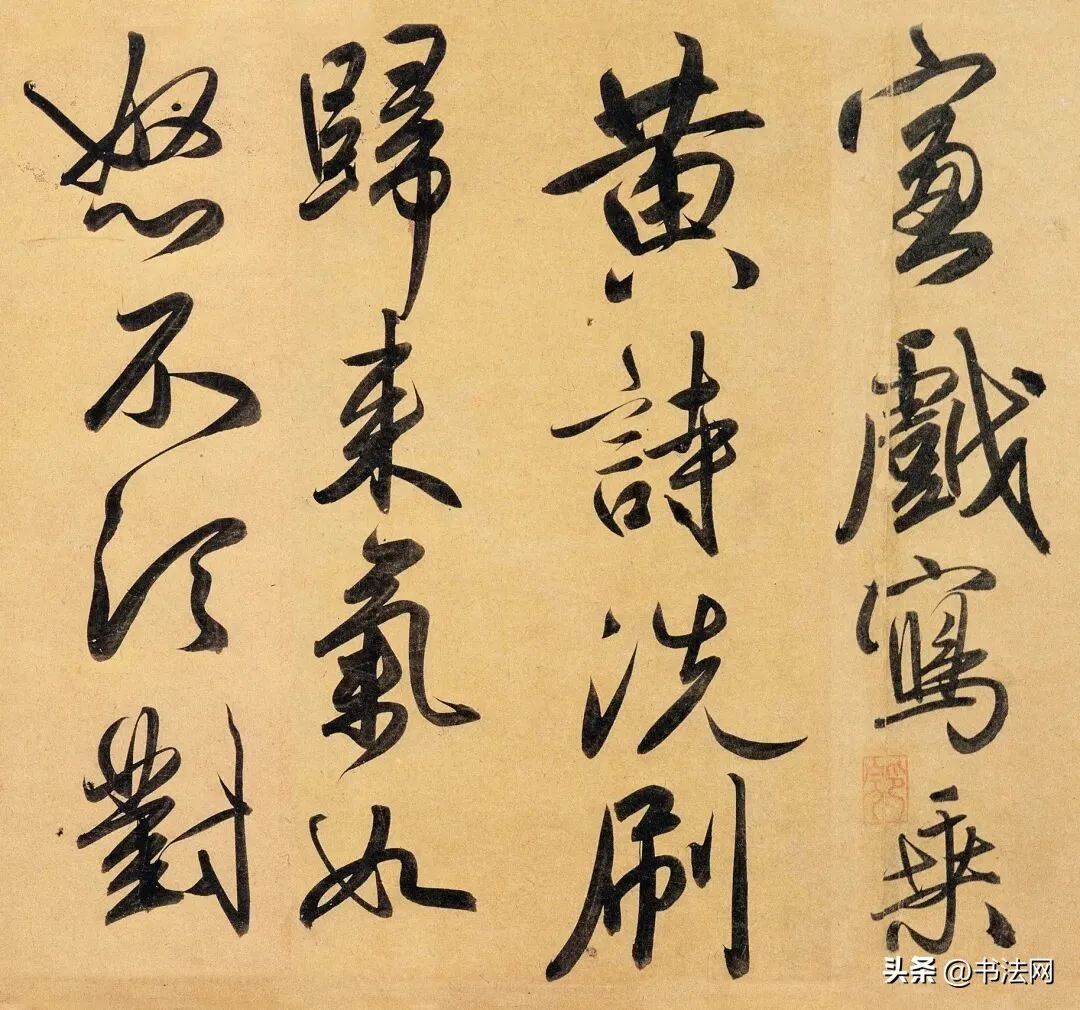 宣戲寫乘
黃詩洗刷
歸來氣如
怒不須對
头条 @书法网